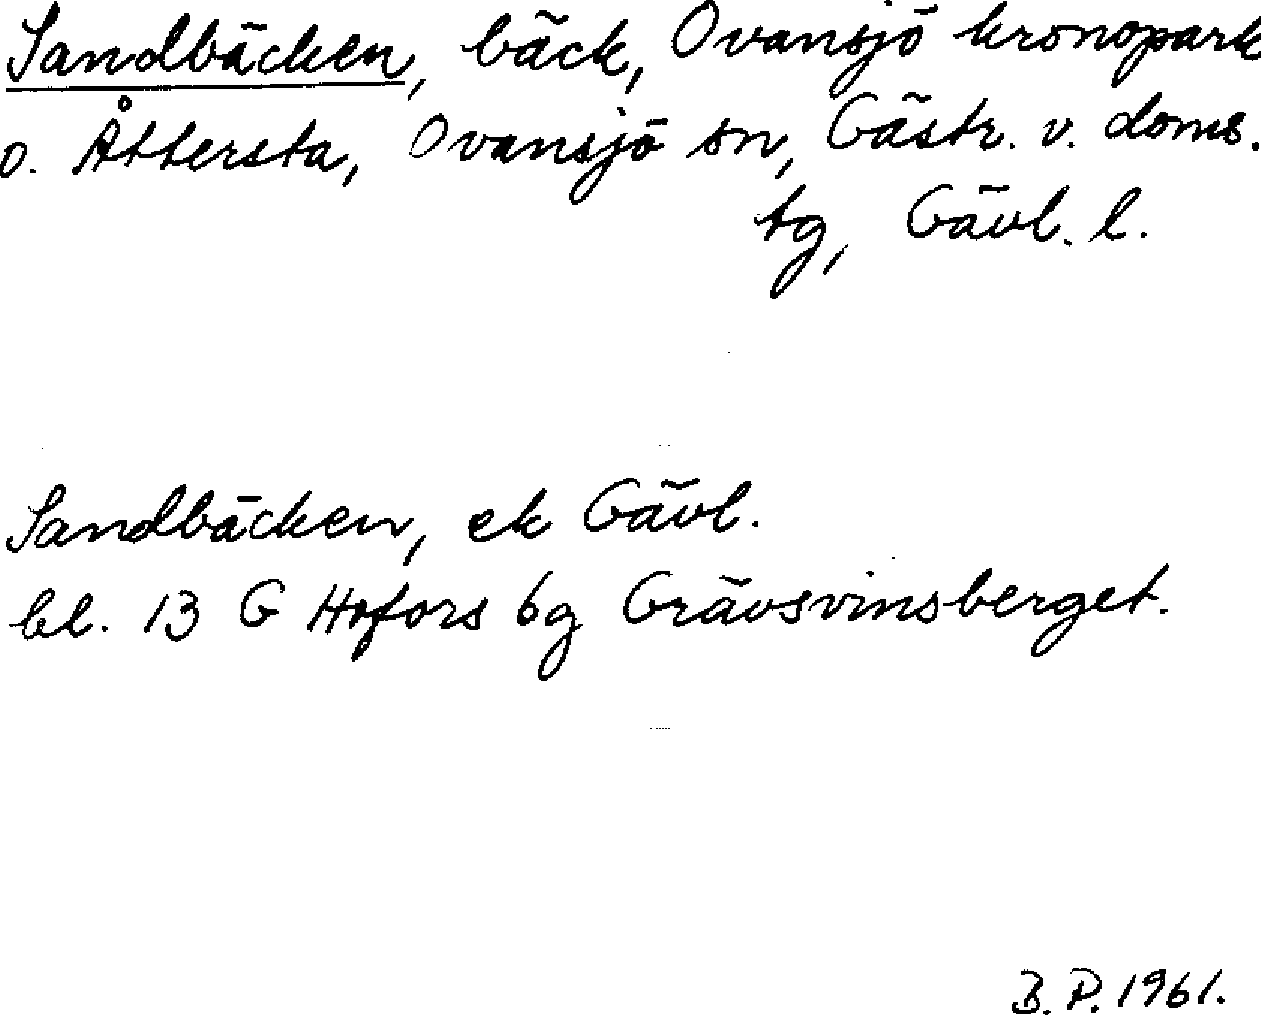 Sandbäcken, bäck, Ovansjö kronopark
o. Åttersta, Ovansjö sn, Gästr. v. doms.
tg, Gävl. l.
Sandbäcken, ek Gävl.
bl. 13 G Hofors 6g Grävsvinsberget.
B. P. 1961.